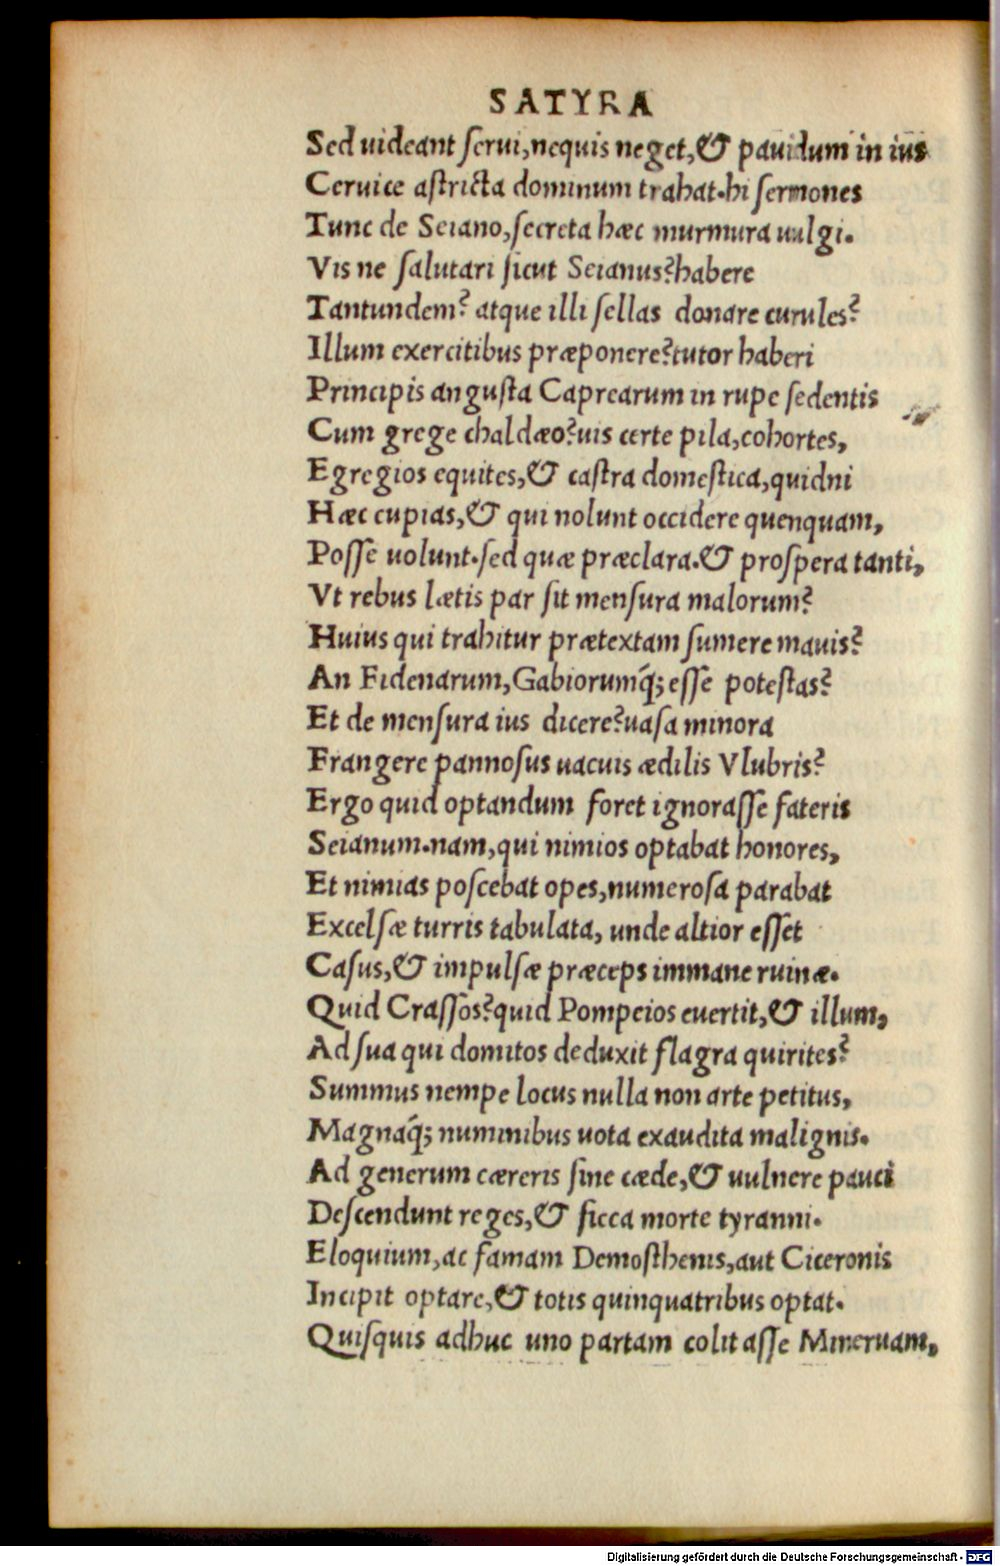 SATYRA
Sed uideant serui,nequis neget,& pauidum in ius
Ceruice astricta dominum trahat.hi sermones
Tunc de Seiano,secreta hæc murmura uulgi.
Vis ne salutari sicut Seianus?habere
Tantundem? atque illi sellas donare curules?
Illum exercitibus præponere?tutor haberi
Principis angusta Caprearum in rupe sedentis
Cum grege chaldæo?uis certe pila,cohortes,
Egregios equites,& castra domestica,quidni
Hæc cupias,& qui nolunt occidere quenquam,
Posse uolunt.sed quæ præclara.& prospera tanti,
Vt rebus lætis par sit mensura malorum?
Huius qui trahitur prætextam sumere mauis?
An Fidenarum,Gabiorumq́; esse potestas?
Et de mensura ius dicere?uasa minora
Frangere pannosus uacuis ædilis Vlubris?
Ergo quid optandum foret ignorasse fateris
Seianum.nam,qui nimios optabat honores,
Et nimias poscebat opes,numerosa parabat
Excelsæ turris tabulata, unde altior esset
Casus,& impulsæ præceps immane ruinæ.
Quid Crassos?quid Pompeios euertit,& illum,
Ad sua qui domitos deduxit flagra quirites?
Summus nempe locus nulla non arte petitus,
Magnaq́; numinibus uota exaudita malignis.
Ad generum cæreris sine cæde,& uulnere pauci
Descendunt reges,& sicca morte tyranni.
Eloquium,ac famam Demosthenis,aut Ciceronis
Incipit optare,& totis quinquatribus optat.
Quisquis adhuc uno partam colit asse Mineruam,
Digitalisierung gefördert durch die Deutsche Forschungsgemeinschaft - DFG